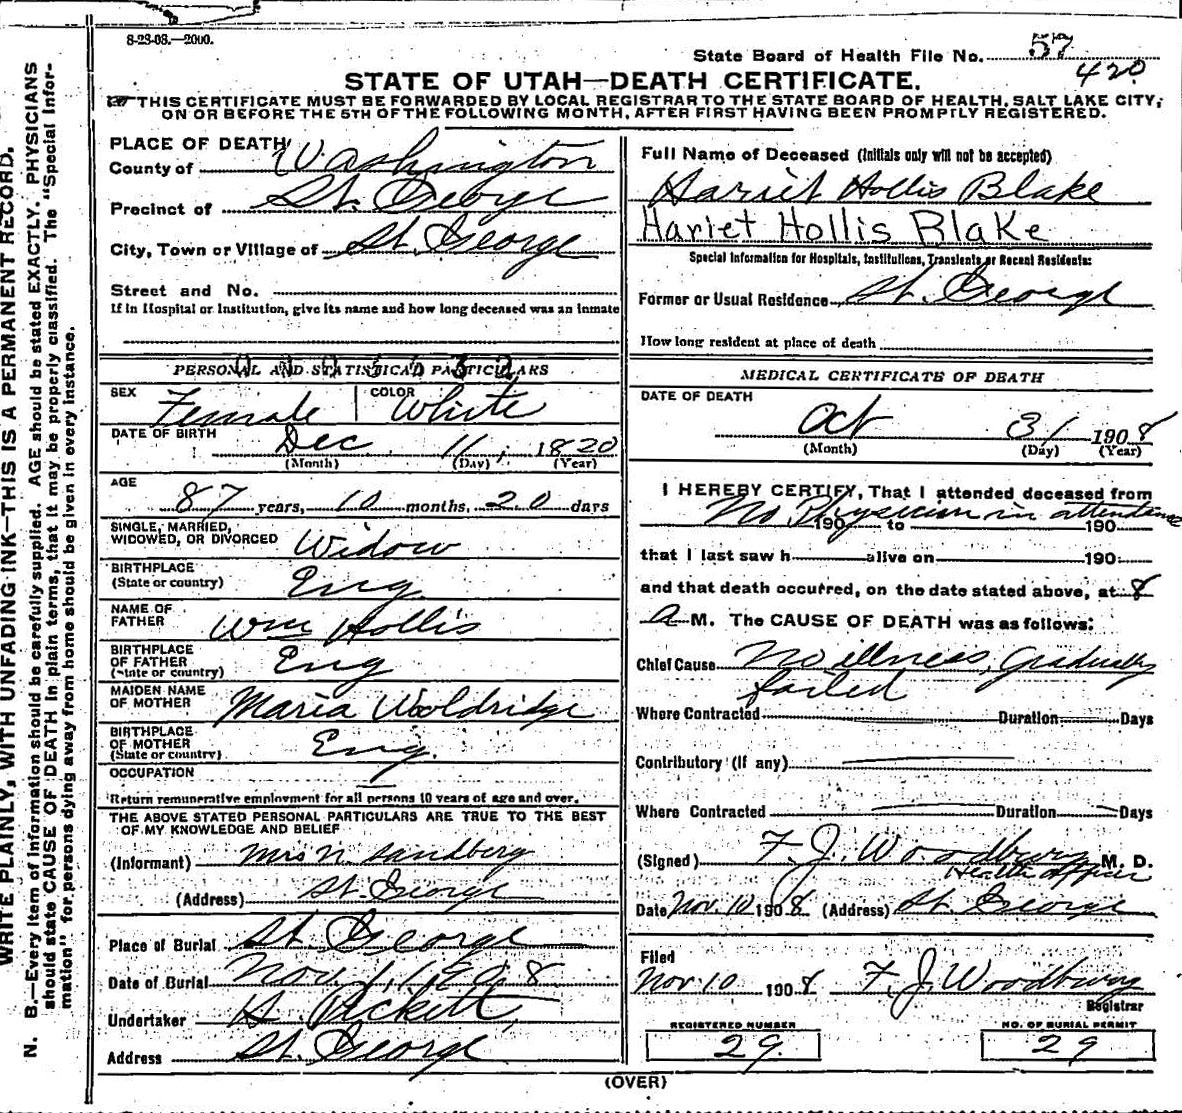 8-23-08.—2000.
State Board of Health File No. 57
420
STATE OF UTAH—DEATH CERTIFICATE.
THIS CERTIFICATE MUST BE FORWARDED BY LOCAL REGISTRAR TO THE STATE BOARD OF HEALTH, SALT LAKE CITY,
ON OR BEFORE THE 5TH OF THE FOLLOWING MONTH, AFTER FIRST HAVING BEEN PROMPTLY REGISTERED.
PLACE OF DEATH
County of Washington
Precinct of St. George
City, Town or Village of St. George
Street and No.
If in Hospital or Institution, give its name and how long deceased was an inmate
PERSONAL AND STATISTICAL PARTICULARS
SEX Female COLOR White
DATE OF BIRTH
Dec 11, 1820
(Month) (Day) (Year)
AGE
87 years, 10 months, 20 days
SINGLE, MARRIED,
WIDOWED, OR DIVORCED Widow
BIRTHPLACE
(State or country) Eng.
NAME OF
FATHER Wm Hollis
BIRTHPLACE
OF FATHER
(State or country) Eng
MAIDEN NAME
OF MOTHER Maria Wooldridge
BIRTHPLACE
OF MOTHER
(State or country) Eng.
OCCUPATION
Return remunerative employment for all persons 10 years of age and over.
THE ABOVE STATED PERSONAL PARTICULARS ARE TRUE TO THE BEST
OF MY KNOWLEDGE AND BELIEF
(Informant) Mrs N. Sandberg
(Address) St. George
Place of Burial St George
Date of Burial Nov. 1, 1908
Undertaker A. Pickett,
Address St. George
Full Name of Deceased (Initials only will not be accepted)
Hariet Hollis Blake
Hariet Hollis Blake
Special Information for Hospitals, Institutions, Transients or Recent Residents:
Former or Usual Residence St. George
How long resident at place of death
MEDICAL CERTIFICATE OF DEATH
DATE OF DEATH
Oct 31 1908
(Month) (Day) (Year)
I HEREBY CERTIFY, That I attended deceased from
No Physician in attendence
190 to 190
that I last saw h alive on 190
and that death occurred, on the date stated above, at 8
a M. The CAUSE OF DEATH was as follows:
Chief Cause No illness, Gradually
failed
Where Contracted Duration Days
Contributory (if any)
Where Contracted Duration Days
(Signed) F. J. Woodbury M. D.
Health officer
Date Nov. 10 1908 (Address) St. George
Filed
Nov 10 1908 F. J. Woodbury
Registrar
REGISTERED NUMBER
29.
NO. OF BURIAL PERMIT
29
(OVER)
WRITE PLAINLY, WITH UNFADING INK—THIS IS A PERMANENT RECORD.
N. B.—Every item of information should be carefully supplied. AGE should be stated EXACTLY. PHYSICIANS
should state CAUSE OF DEATH in plain terms, that it may be properly classified. The "Special Infor-
mation" for persons dying away from home should be given in every instance.